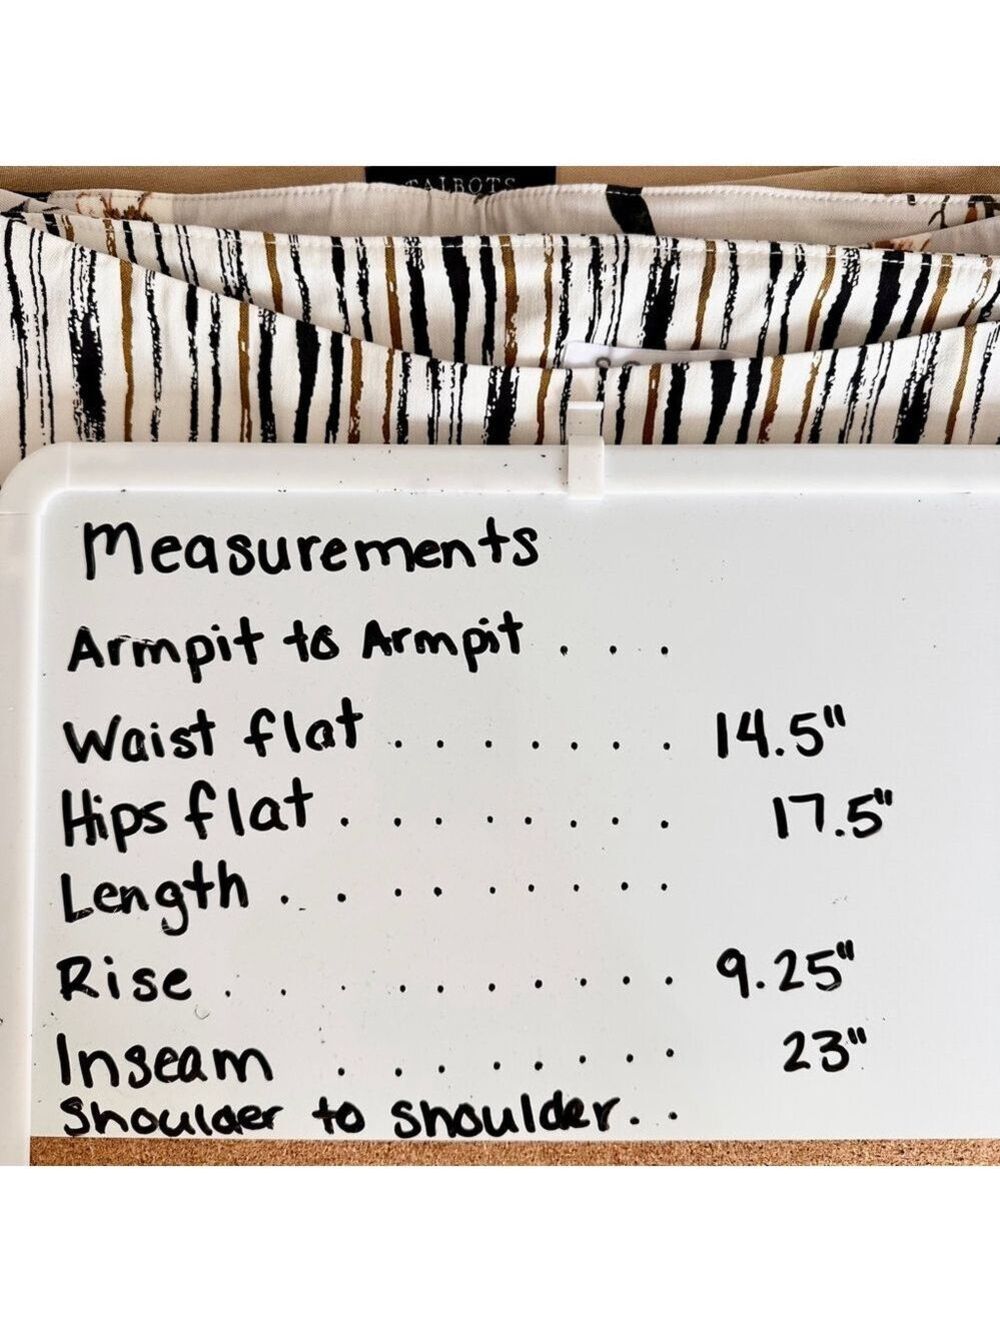 TALBOTS
Measurements
Armpit to Armpit . . .
Waist flat . . . . . . . 14.5"
Hips flat . . . . . . . . 17.5"
Length . . . . . . . . .
Rise . . . . . . . . . . . 9.25"
Inseam . . . . . . . . 23"
Shoulder to shoulder. .